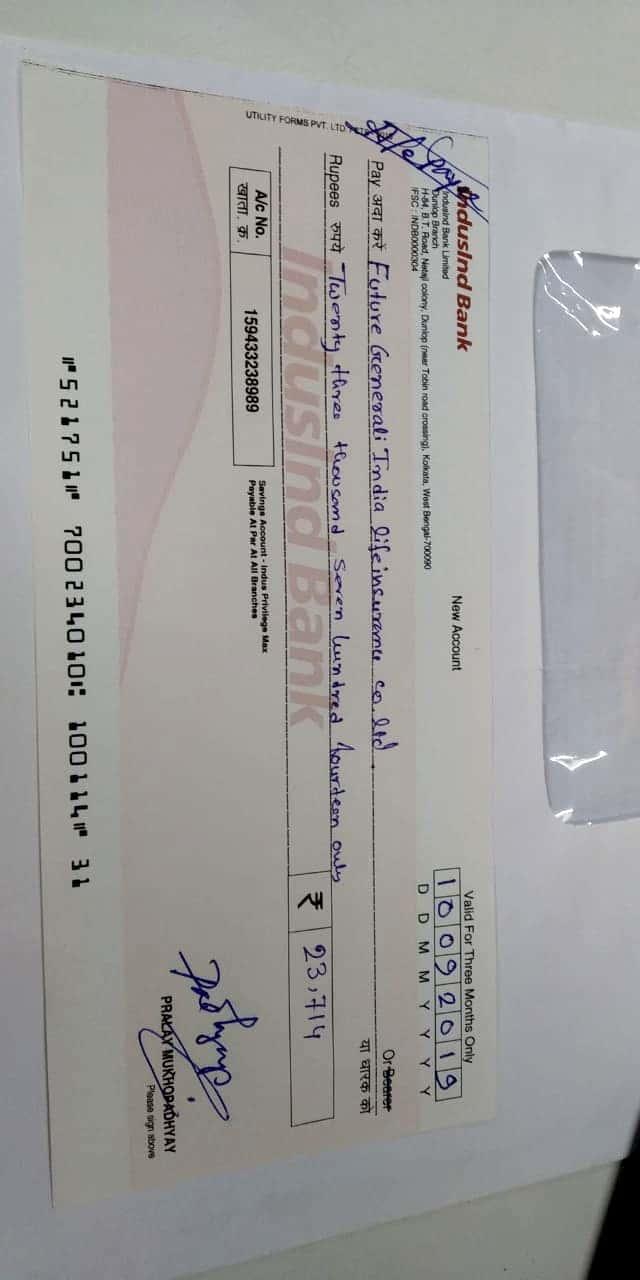 A/c Payee
IndusInd Bank
IndusInd Bank Limited
Dunlop Branch
H-84, B.T. Road, Netaji colony, Dunlop (near Tobin road crossing), Kolkata, West Bengal-700090
IFSC : INDB0000304
New Account
Valid For Three Months Only
10092019
D D M M Y Y Y Y
Pay अदा करें Future Generali India life insurance co. ltd
Or Bearer
या धारक को
Rupees रुपये Twenty three thousand seven hundred fourteen only
₹ 23,714
IndusInd Bank
A/c No.
खाता. क्र.
159433238989
Savings Account - Indus Privilege Max
Payable At Par At All Branches
UTILITY FORMS PVT. LTD.
PRALAY MUKHOPADHYAY
Please sign above
⑈521751⑈ 700234010⑆ 100114⑈ 31